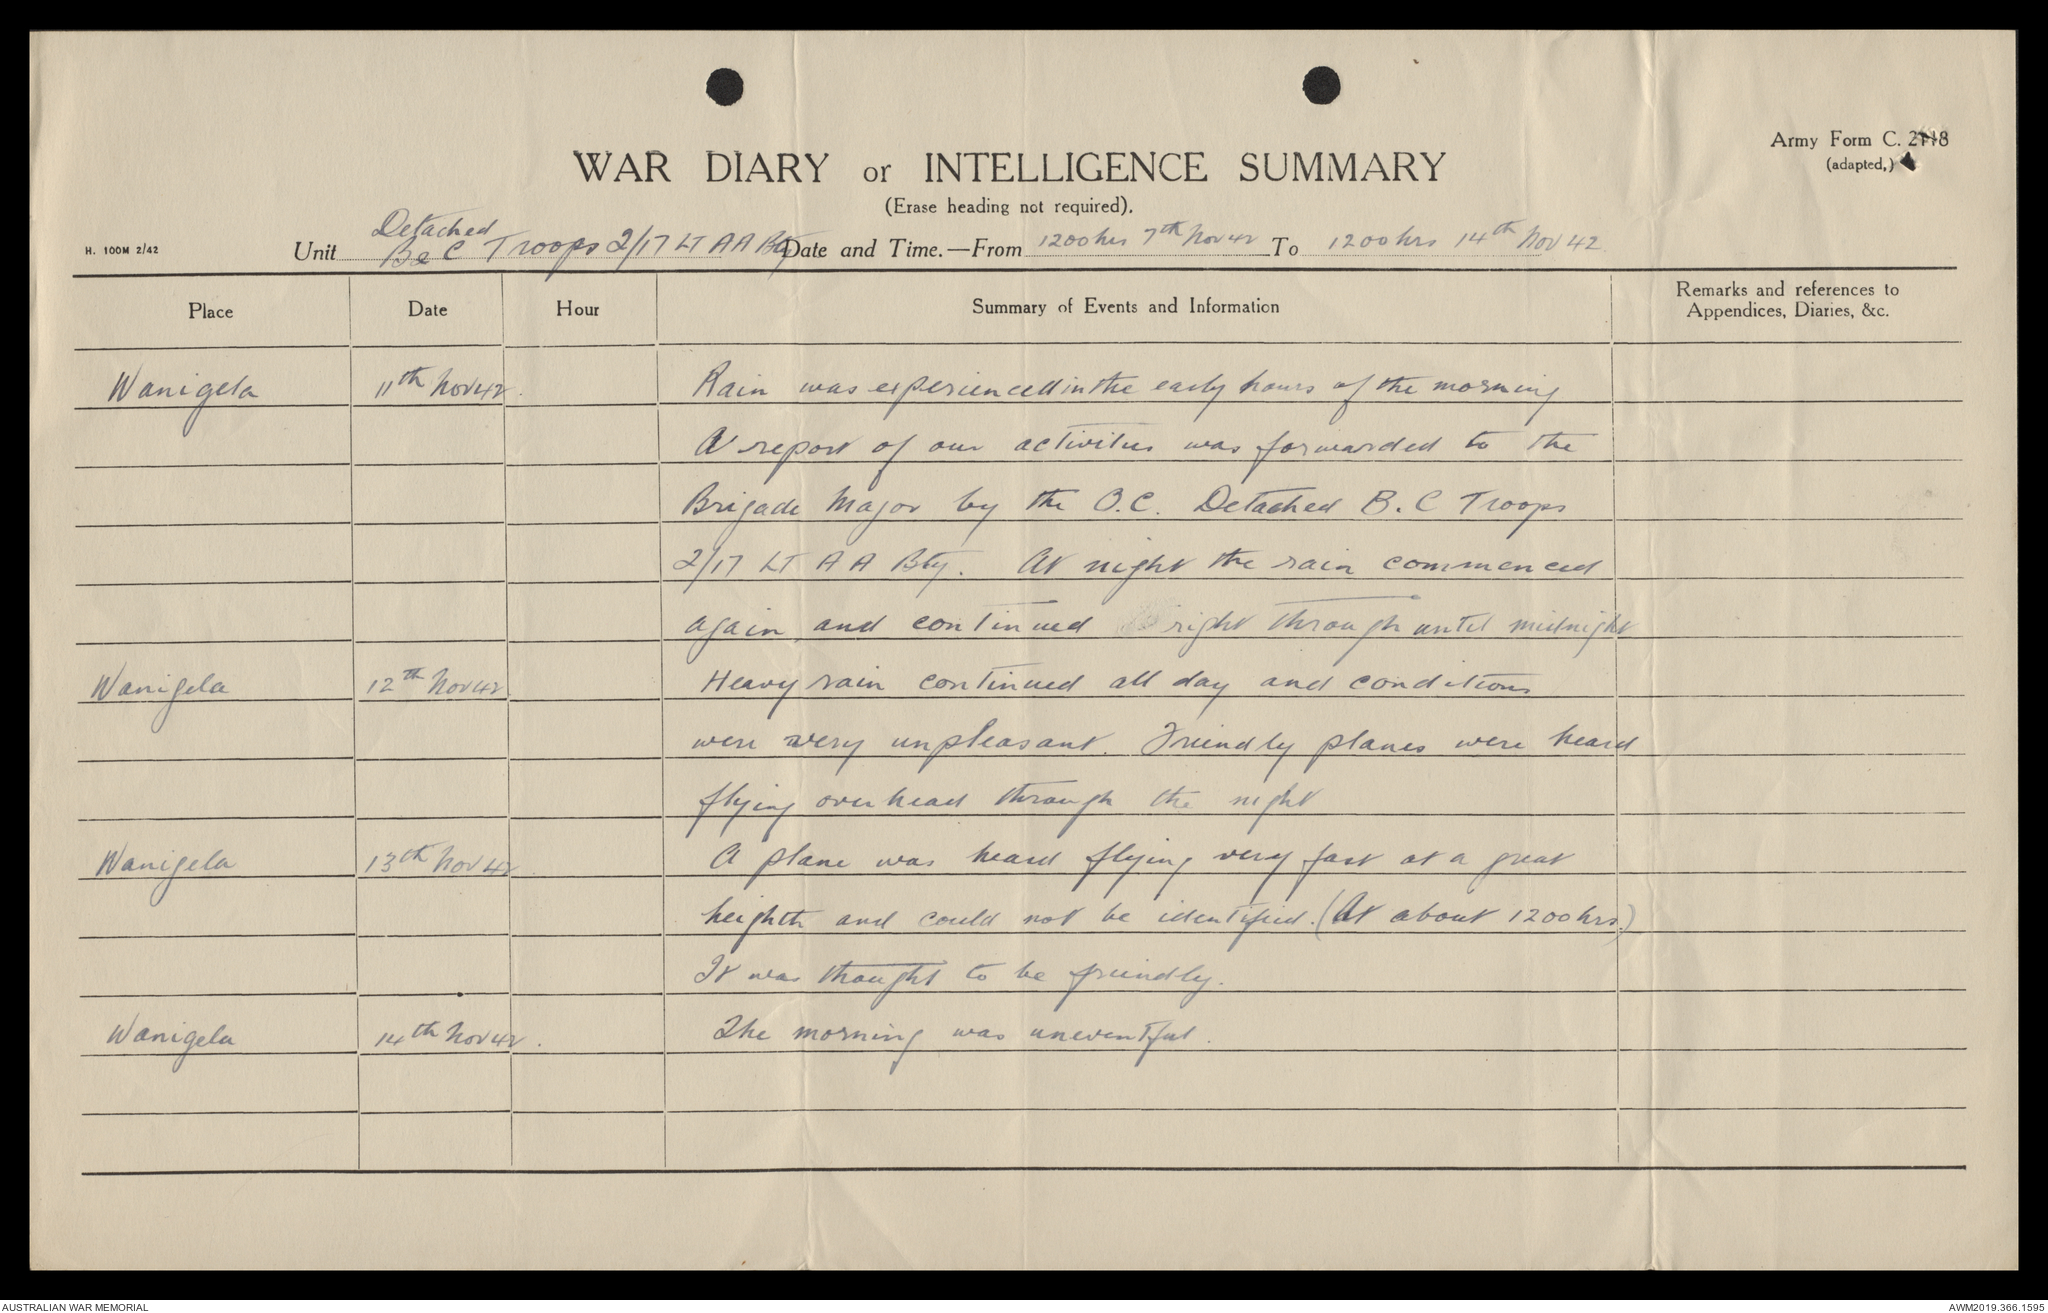 Army Form C. 2118
(adapted,)
WAR DIARY or INTELLIGENCE SUMMARY
(Erase heading not required).
H. 100M 2/42
Unit Detached B & C Troops 2/17 LT AA Bty Date and Time.—From 1200 hrs 7th Nov 42 To 1200 hrs 14th Nov 42
Place Date Hour Summary of Events and Information Remarks and references to Appendices, Diaries, &c.
Wanigela 11th Nov 42. Rain was experienced in the early hours of the morning
A report of our activities was forwarded to the
Brigade Major by the O.C. Detached B. C Troops
2/17 LT A A Bty. At night the rain commenced
again and continued right through until midnight
Wanigela 12th Nov 42 Heavy rain continued all day and conditions
were very unpleasant. Friendly planes were heard
flying overhead through the night
Wanigela 13th Nov 42 A plane was heard flying very fast at a great
heighth and could not be identified. (At about 1200 hrs.)
It was thought to be friendly.
Wanigela 14th Nov 42. The morning was uneventful.
AUSTRALIAN WAR MEMORIAL AWM2019.366.1595